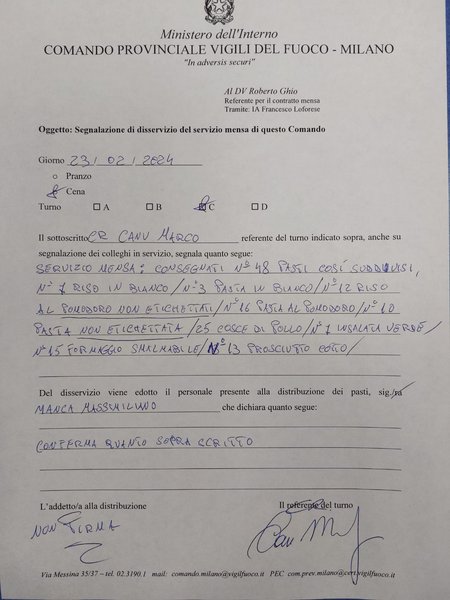 Ministero dell'Interno
COMANDO PROVINCIALE VIGILI DEL FUOCO - MILANO
"In adversis securi"
Al DV Roberto Ghio
Referente per il contratto mensa
Tramite: IA Francesco Loforese
Oggetto: Segnalazione di disservizio del servizio mensa di questo Comando
Giorno 23/02/2024
Pranzo
Cena
Turno A B C D
Il sottoscritto CR CANU MARCO referente del turno indicato sopra, anche su
segnalazione dei colleghi in servizio, segnala quanto segue:
SERVIZIO MENSA: CONSEGNATI N° 48 PASTI COSÍ SUDDIVISI,
N° 1 RISO IN BIANCO/N° 3 PASTA IN BIANCO/N° 12 RISO
AL POMODORO NON ETICHETTATI/N° 16 PASTA AL POMODORO/N° 10
PASTA NON ETICHETTATA/25 COSCE DI POLLO/N° 1 INSALATA VERDE/
N° 15 FORMAGGIO SPALMABILE/N° 13 PROSCIUTTO COTTO/
Del disservizio viene edotto il personale presente alla distribuzione dei pasti, sig./ra
MANCA MASSIMILIANO che dichiara quanto segue:
CONFERMA QUANTO SOPRA SCRITTO
L'addetto/a alla distribuzione Il referente del turno
NON FIRMA
Via Messina 35/37 – tel. 02.3190.1 mail: comando.milano@vigilfuoco.it PEC com.prev.milano@cert.vigilfuoco.it